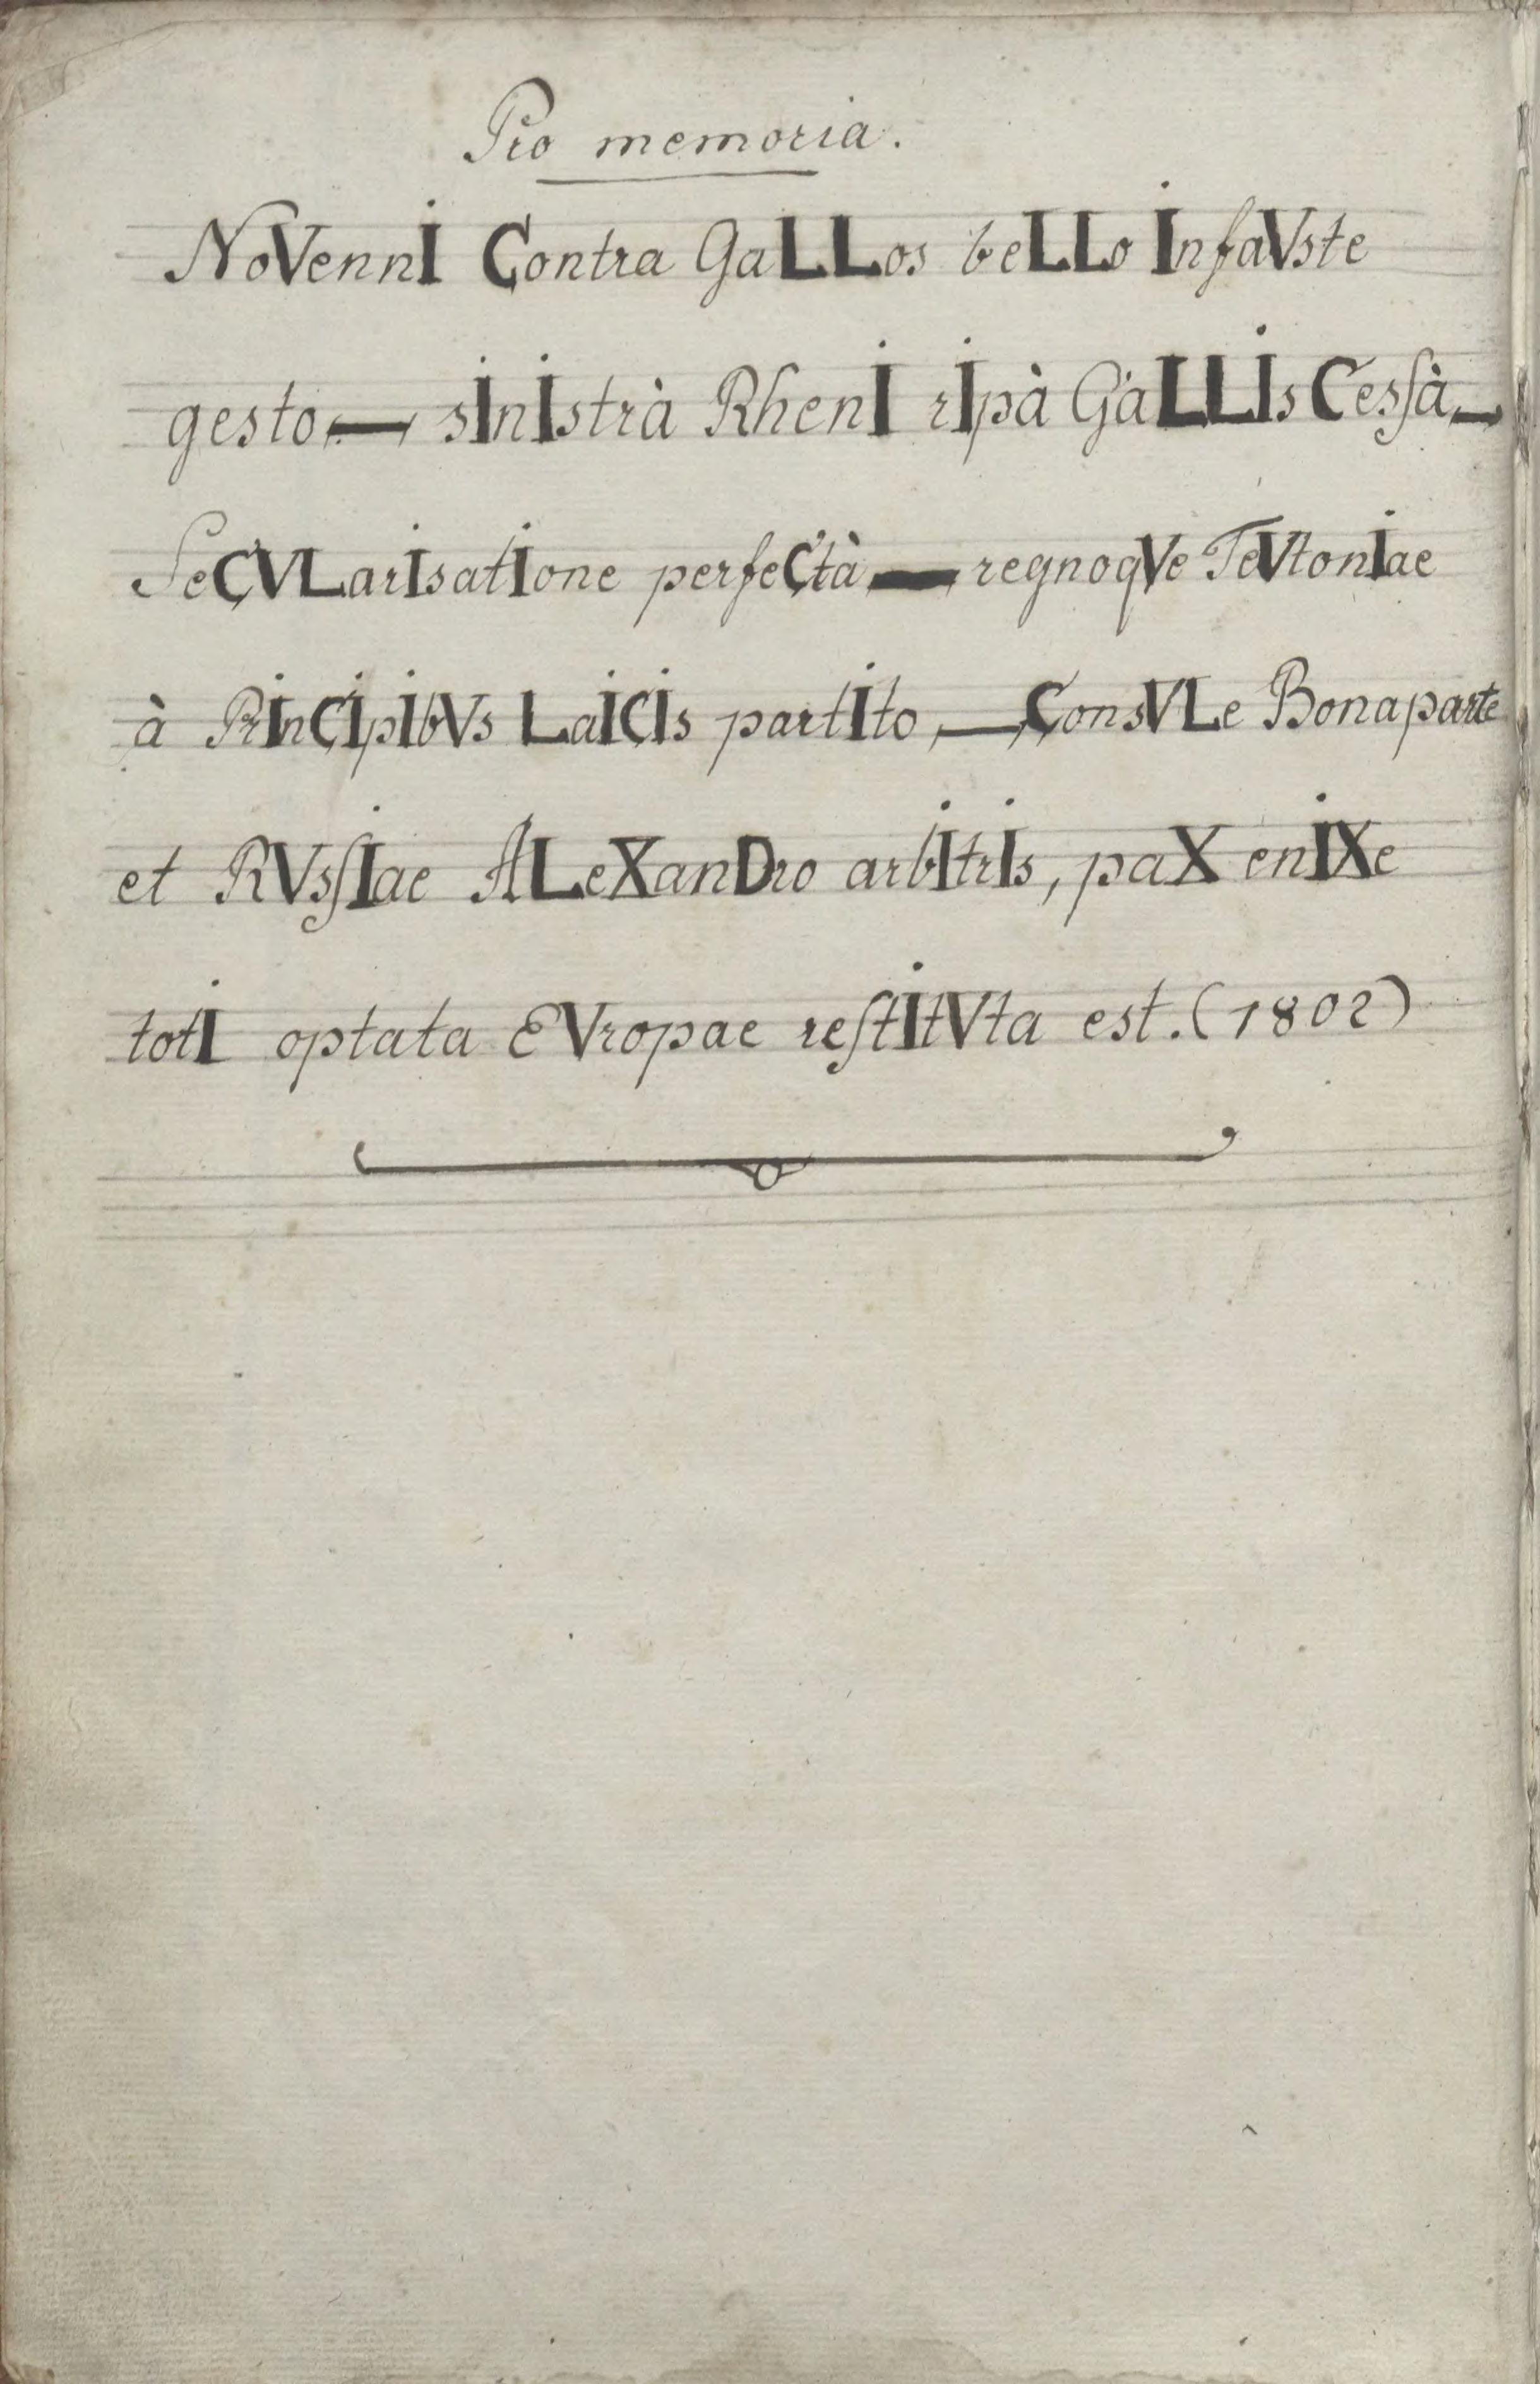 Pro memoria.
NoVennI Contra GaLLos beLLo InfaVste
gesto, — sInIstrà RhenI rIpà GaLLIs Cesſà —
SeCVLarIsatIone perfeCtà — regnoqVe TeVtonIae
à PrInCIpIbVs LaICIs partIto, — ConsVLe Bonaparte
et RVsſIae ALeXanDro arbItrIs, paX enIXe
totI optata EVropae reſtItVta est. (1802)